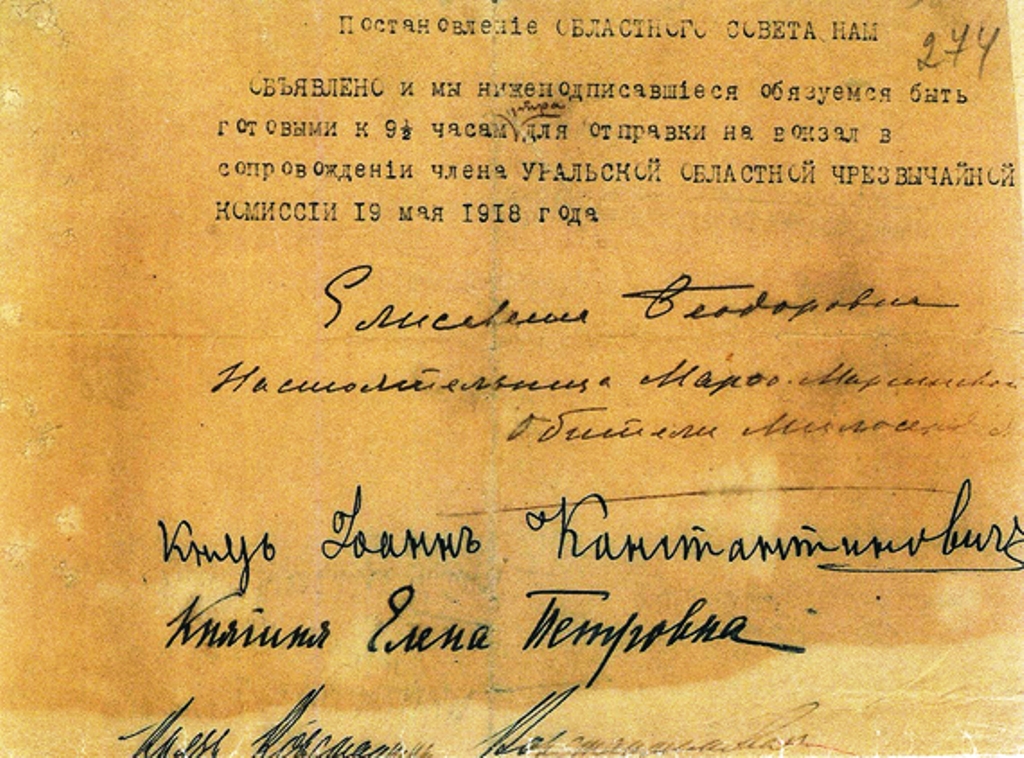 Постановленіе ОБЛАСТНОГО СОВЕТА НАМ
274
ОБЪЯВЛЕНО и мы нижеподписавшіеся обязуемся быть
утра
готовыми к 9½ часам для отправки на вокзал в
сопровожденіи члена УРАЛЬСКОЙ ОБЛАСТНОЙ ЧРЕЗВЫЧАЙНОЙ
КОМИССІИ 19 мая 1918 года
Елисавета Ѳеодоровна
Настоятельница Марѳо-Маріинской
Обители Милосердія
Князь Іоаннъ Константиновичъ
Княгиня Елена Петровна
Князь Константинъ Константиновичъ